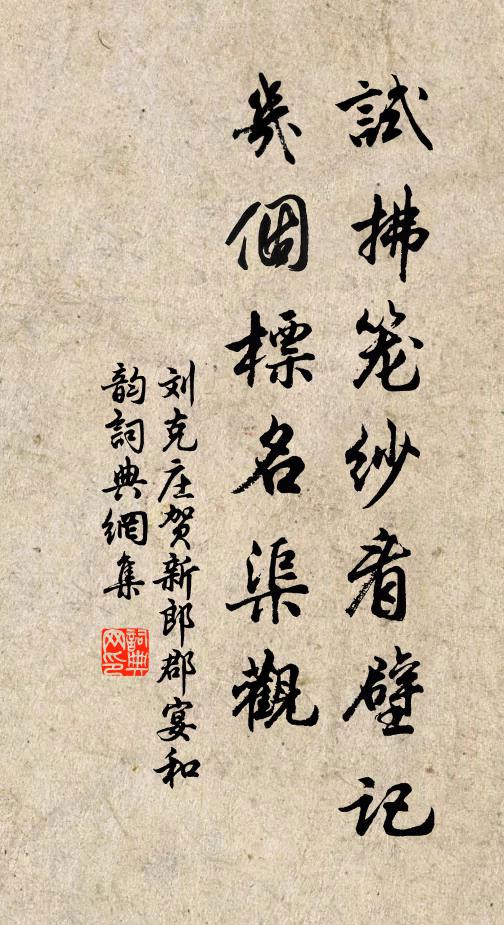 試拂笼紗看壁記
幾個標名渠觀
刘克庄贺新郎郡宴和
韵詞典網集
詞典网印